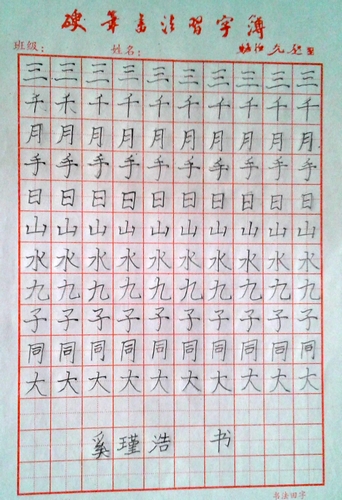 硬筆書法習字簿
班级： 姓名：
三三三三三三三三三三
千千千千千千千千千千
月月月月月月月月月月
手手手手手手手手手手
日日日日日日日日日日
山山山山山山山山山山
水水水水水水水水水水
九九九九九九九九九九
子子子子子子子子子子
同同同同同同同同同同
大大大大大大大大大大
奚瑾浩 书
书法田字